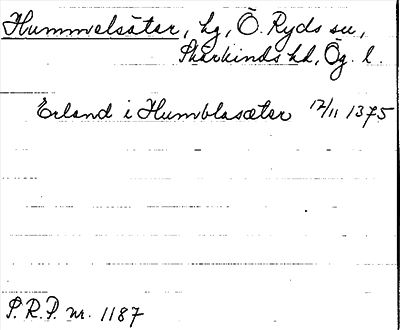 Hummelsäter, hg, Ö. Ryds sn,
Skärkinds hd, Ög. l.
Erland i Humblasæter 17/11 1375
P.R.P. nr. 1187